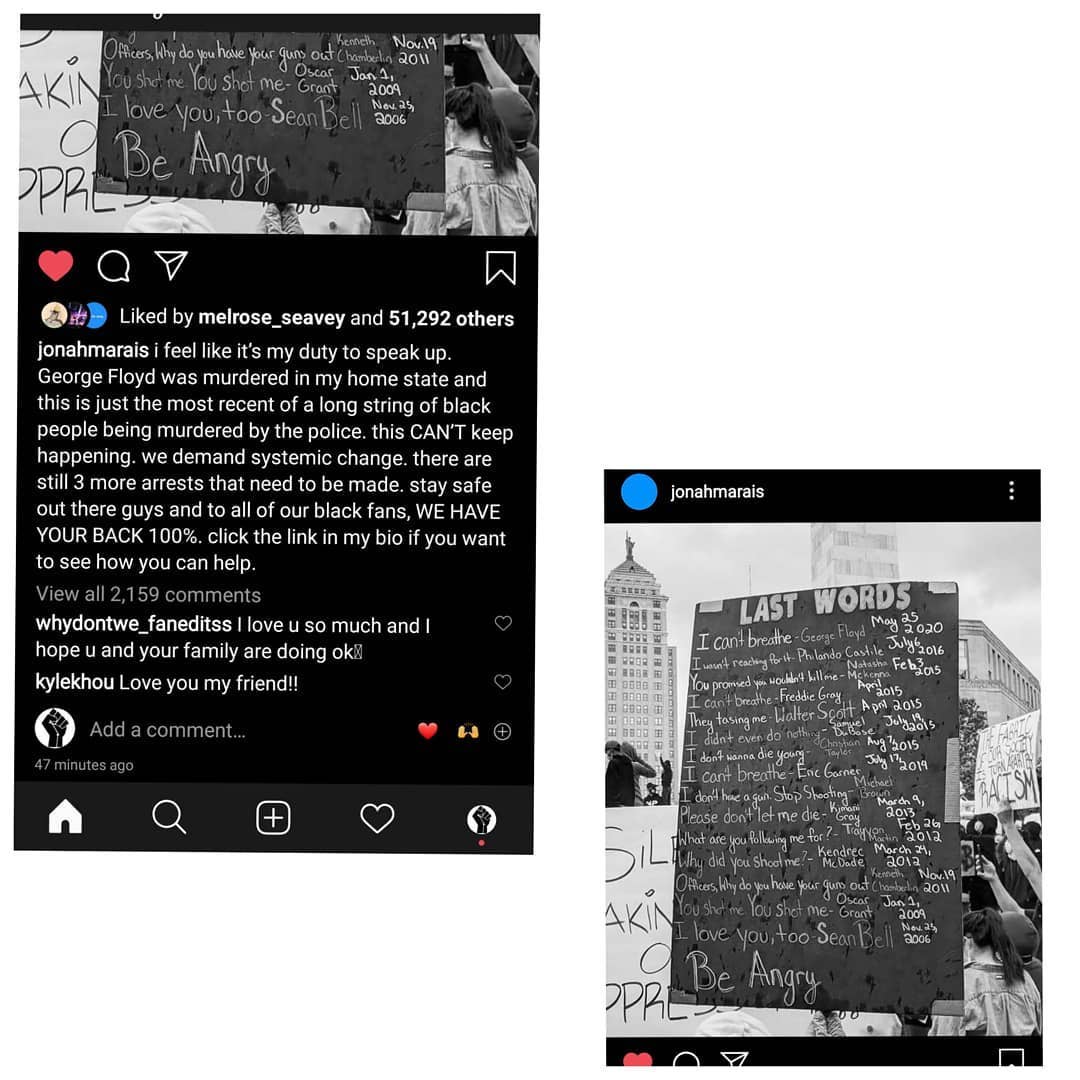 Officers, Why do you have your guns out Kenneth Chamberlin Nov.19 2011
You shot me You shot me- Oscar Grant Jan 1, 2009
I love you, too-Sean Bell Nov. 25, 2006
Be Angry
AKIN
O
PPRESS
Liked by melrose_seavey and 51,292 others
jonahmarais i feel like it's my duty to speak up.
George Floyd was murdered in my home state and
this is just the most recent of a long string of black
people being murdered by the police. this CAN'T keep
happening. we demand systemic change. there are
still 3 more arrests that need to be made. stay safe
out there guys and to all of our black fans, WE HAVE
YOUR BACK 100%. click the link in my bio if you want
to see how you can help.
View all 2,159 comments
whydontwe_faneditss I love u so much and I
hope u and your family are doing ok
kylekhou Love you my friend!!
Add a comment...
47 minutes ago
jonahmarais
LAST WORDS
I can't breathe-George Floyd May 25 2020
I wasn't reaching for it- Philando Castile July 6 2016
You promised you wouldn't kill me- Natasha Mckenna Feb 3 2015
I can't breathe-Freddie Gray April 2015
They tasing me-Walter Scott April 2015
I didn't even do nothing- Samuel DuBose July 19, 2015
I don't wanna die young- Christian Taylor Aug 7, 2015
I can't breathe-Eric Garner July 17, 2014
I don't have a gun. Stop Shooting- Michael Brown
Please don't let me die- Kimani Gray March 9, 2013
What are you following me for?- Trayvon Martin Feb 26, 2012
Why did you shoot me?- Kendrec McDade March 24, 2012
Officers, Why do you have your guns out Kenneth Chamberlin Nov.19 2011
You shot me You shot me- Oscar Grant Jan 1, 2009
I love you, too-Sean Bell Nov. 25, 2006
Be Angry
SiLE
AKIN
O
PPRESS
RACISM